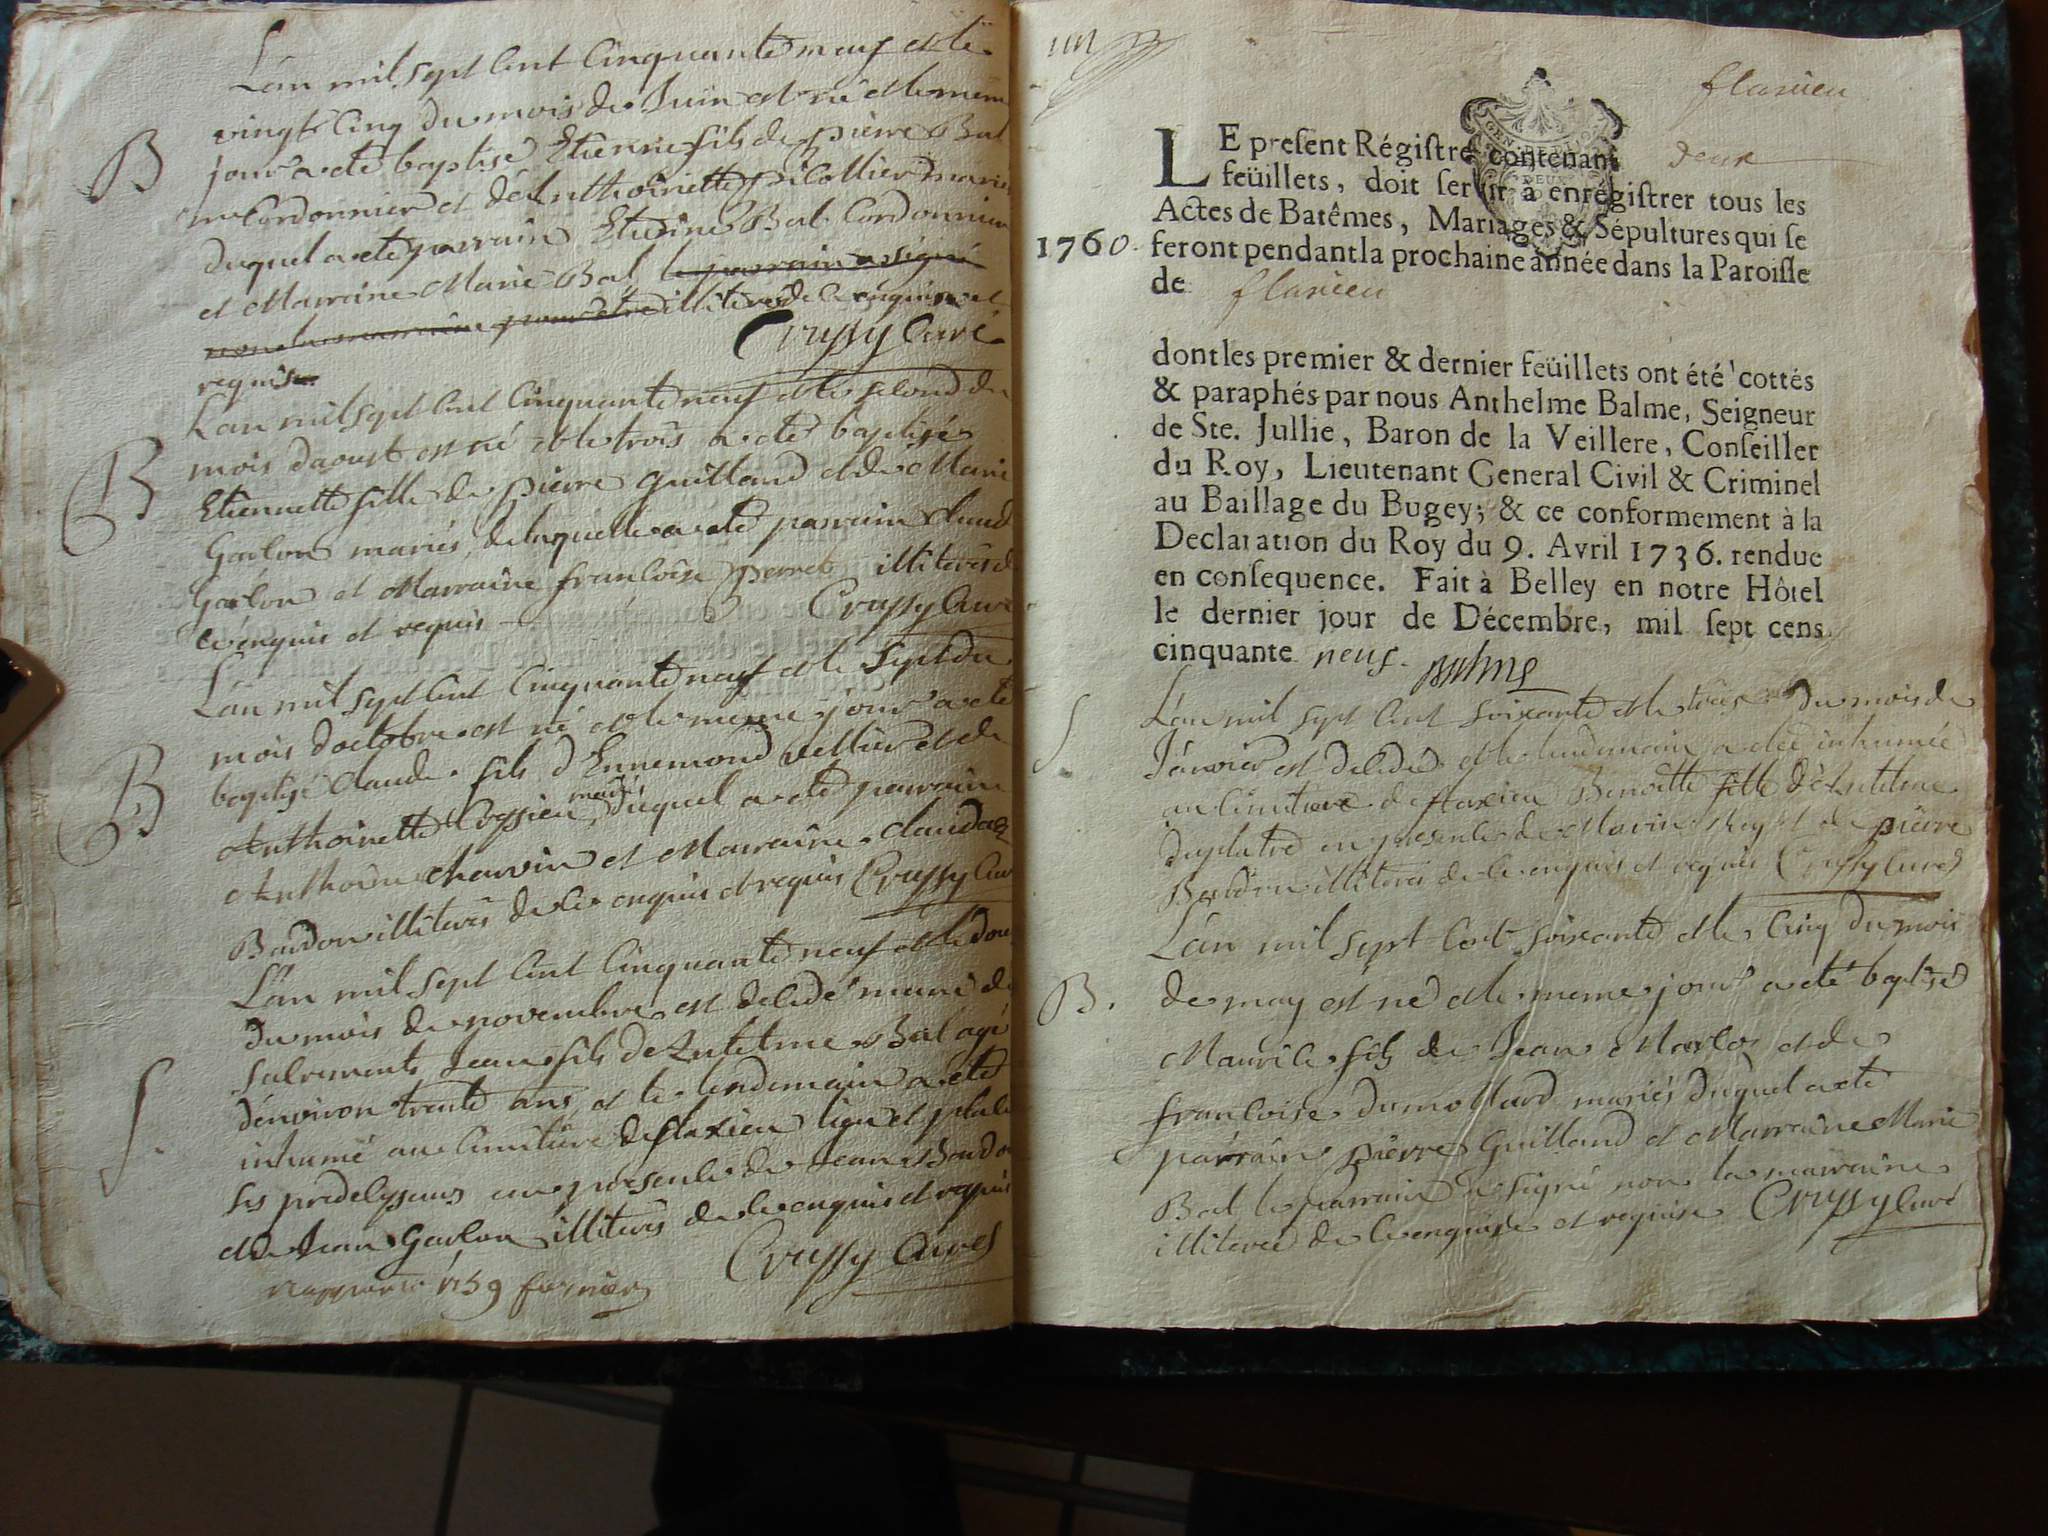 L'an mil sept cent cinquante neuf et le
vingt cinq du mois de Juin est né et le meme
B jour a eté baptisé Etienne fils de pierre Bal
me Cordonnier et d'Anthoinette pilollier mariés
duquel a eté parrain Etienne Bal Cordonnier
et Marraine Marie Bal le parrain a signé
non la marraine pour etre illiteres de ce enquis et
requis Crussy Curé
L'an mil sept cent cinquante neuf et le second du
mois daoust est né et le trois a eté baptisée
B Etiennette fille de pierre Guilland et de Marie
Garlon mariés, de laquelle a eté parrain Claud
Garlon et Marraine francoise perret illiterés d
ce enquis et requis Crussy Curé
L'an mil sept cent cinquante neuf et le sept du
mois doctobre est né et le meme jour a eté
B baptisé Claude fils d'Ennemond vellier et de
Anthoinette Cossieu mariés duquel a eté parrain
Anthoine charvin et Marraine Claudaz
Baudon illiterés de ce enquis et requis Crussy Curé
L'an mil sept cent cinquante neuf et le douz
du mois de novembre est decedé muni de
sacrements Jean fils de Antelme Bal agé
S. d'environ trente ans, et le lendemain a eté
inhumé au cimitiere de flaxieu lieu et place
ses predecesseurs en presence de Jean Baudon
et de Jean Garlon illiterés de ce enquis et requis
Crussy Curé
rapporté 1759
flaxieu
LE preſent Régiſtre contenant deux
feüillets, doit ſervir à enrégiſtrer tous les
Actes de Batêmes, Mariages & Sépultures qui ſe
1760. feront pendant la prochaine année dans la Paroiſſe
de flaxieu
dont les premier & dernier feüillets ont été cottés
& paraphés par nous Anthelme Balme, Seigneur
de Ste. Jullie, Baron de la Veillere, Conſeiller
du Roy, Lieutenant General Civil & Criminel
au Baillage du Bugey; & ce conformement à la
Declaration du Roy du 9. Avril 1736. rendue
en conſequence. Fait à Belley en notre Hôtel
le dernier jour de Décembre, mil ſept cens
cinquante neuf. Balme
S L'an mil sept cent soixante et le trois du mois de
Janvier est decedée et le lendemain a eté inhumée
au cimitiere de flaxieu Benoitte fille d'Antelme
duplatre en presence de Marin et de pierre
Baudon illiterés de ce enquis et requis Crussy Curé
L'an mil sept cent soixante et le cinq du mois
B. de may est né et le meme jour a eté baptisé
Maurice fils de Jean Marlos et de
francoise dumollard mariés duquel a eté
parrain pierre Guilland et Marraine Marie
Bal le parrain a signé non la marraine
illiteree de ce enquise et requise Crussy Curé